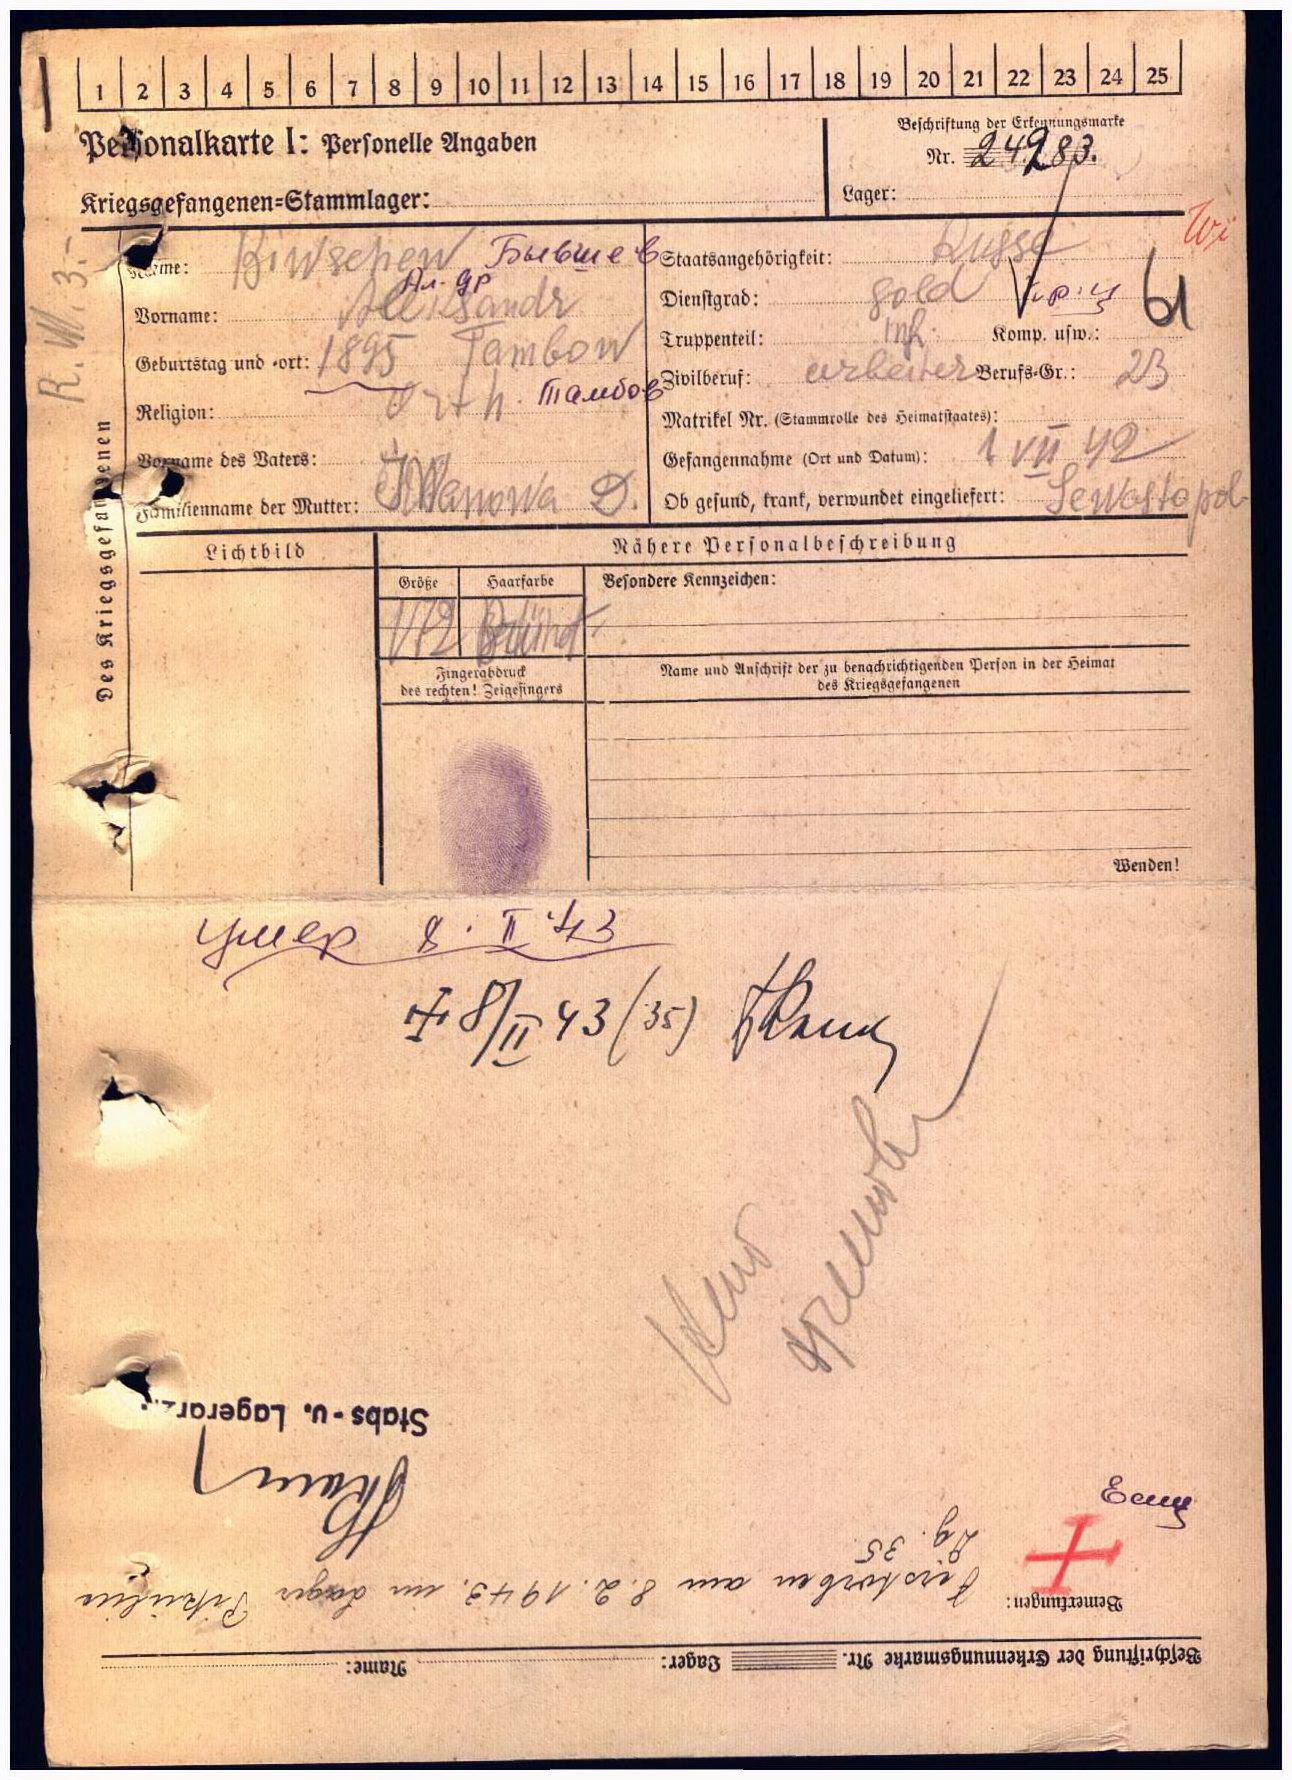 1 2 3 4 5 6 7 8 9 10 11 12 13 14 15 16 17 18 19 20 21 22 23 24 25
Personalkarte I: Personelle Angaben
Kriegsgefangenen-Stammlager:
Beschriftung der Erkennungsmarke
Nr. 24983.
Lager:
R. W. 3.-
Des Kriegsgefangenen
Name: Biwschew Бывшев
Ал-др
Vorname: Aleksandr
Geburtstag und -ort: 1895 Tambow
Тамбов
Religion: Orth.
Vorname des Vaters:
Familienname der Mutter: Iwanowa D.
Staatsangehörigkeit: Russe
Dienstgrad: sold
Truppenteil: Inf. Komp. usw.:
Zivilberuf: arbeiter Berufs-Gr.: 2B
Matrikel Nr. (Stammrolle des Heimatstaates):
Gefangennahme (Ort und Datum): 1 VII 42
Sewastopol
Ob gesund, krank, verwundet eingeliefert:
Lichtbild
Nähere Personalbeschreibung
Größe Haarfarbe Besondere Kennzeichen:
172
Fingerabdruck
des rechten! Zeigefingers
Name und Anschrift der zu benachrichtigenden Person in der Heimat
des Kriegsgefangenen
Wenden!
умер 8. II 43
8/II 43 (35)
Stabs- u. Lagerarzt
Lg. 35.
Verstorben am 8.2.1943. im Lager
Bemerkungen:
Beschriftung der Erkennungsmarke Nr. Lager: Name: